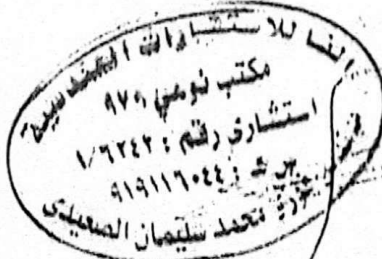 الفا للاستشارات الهندسية
مكتب نوعي ٩٧٥
استشاري رقم : ١/٦٢٤٢
س ت : ٩١٩١١٦٠٤٤
محمد سليمان الصعيدي